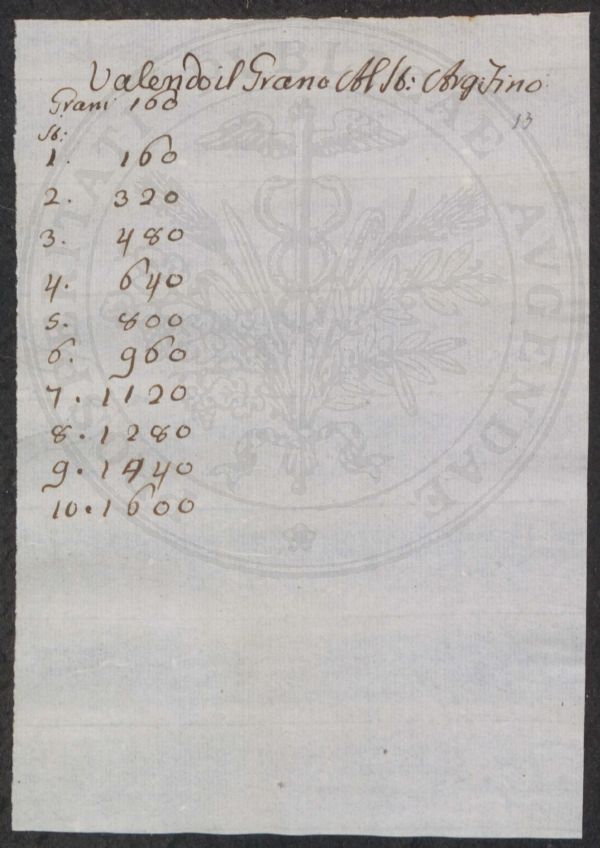 Valendo il Grano Al St: Arg: Fino
Grani 160
13
St:
1. 160
2. 320
3. 480
4. 640
5. 800
6. 960
7. 1120
8. 1280
9. 1440
10. 1600
PROSPERITATI PUBLICAE AVGENDAE